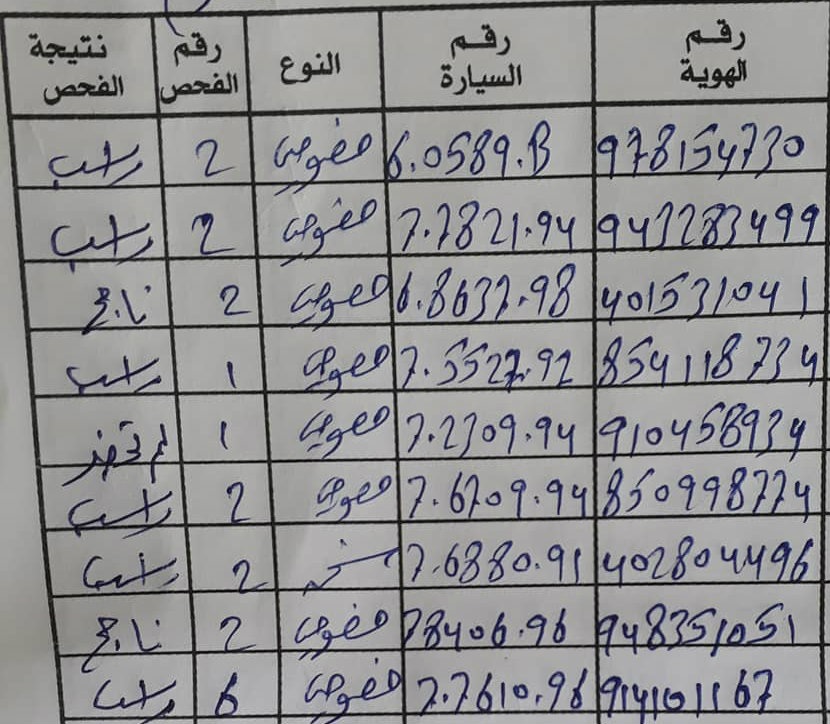 رقم الهوية رقم السيارة النوع رقم الفحص نتيجة الفحص
978154730 6.0589.B عمومي 2 راسب
943283499 7.7821.94 عمومي 2 راسب
401531041 6.8637.98 عمومي 2 ناجح
854118734 7.5527.92 عمومي 1 راسب
910458934 7.2309.94 عمومي 1 لم تجهز
850998774 7.6709.94 عمومي 2 راسب
402804496 7.6880.91 2 راسب
948351051 78406.96 عمومي 2 ناجح
914101167 7.7610.96 عمومي 6 راسب